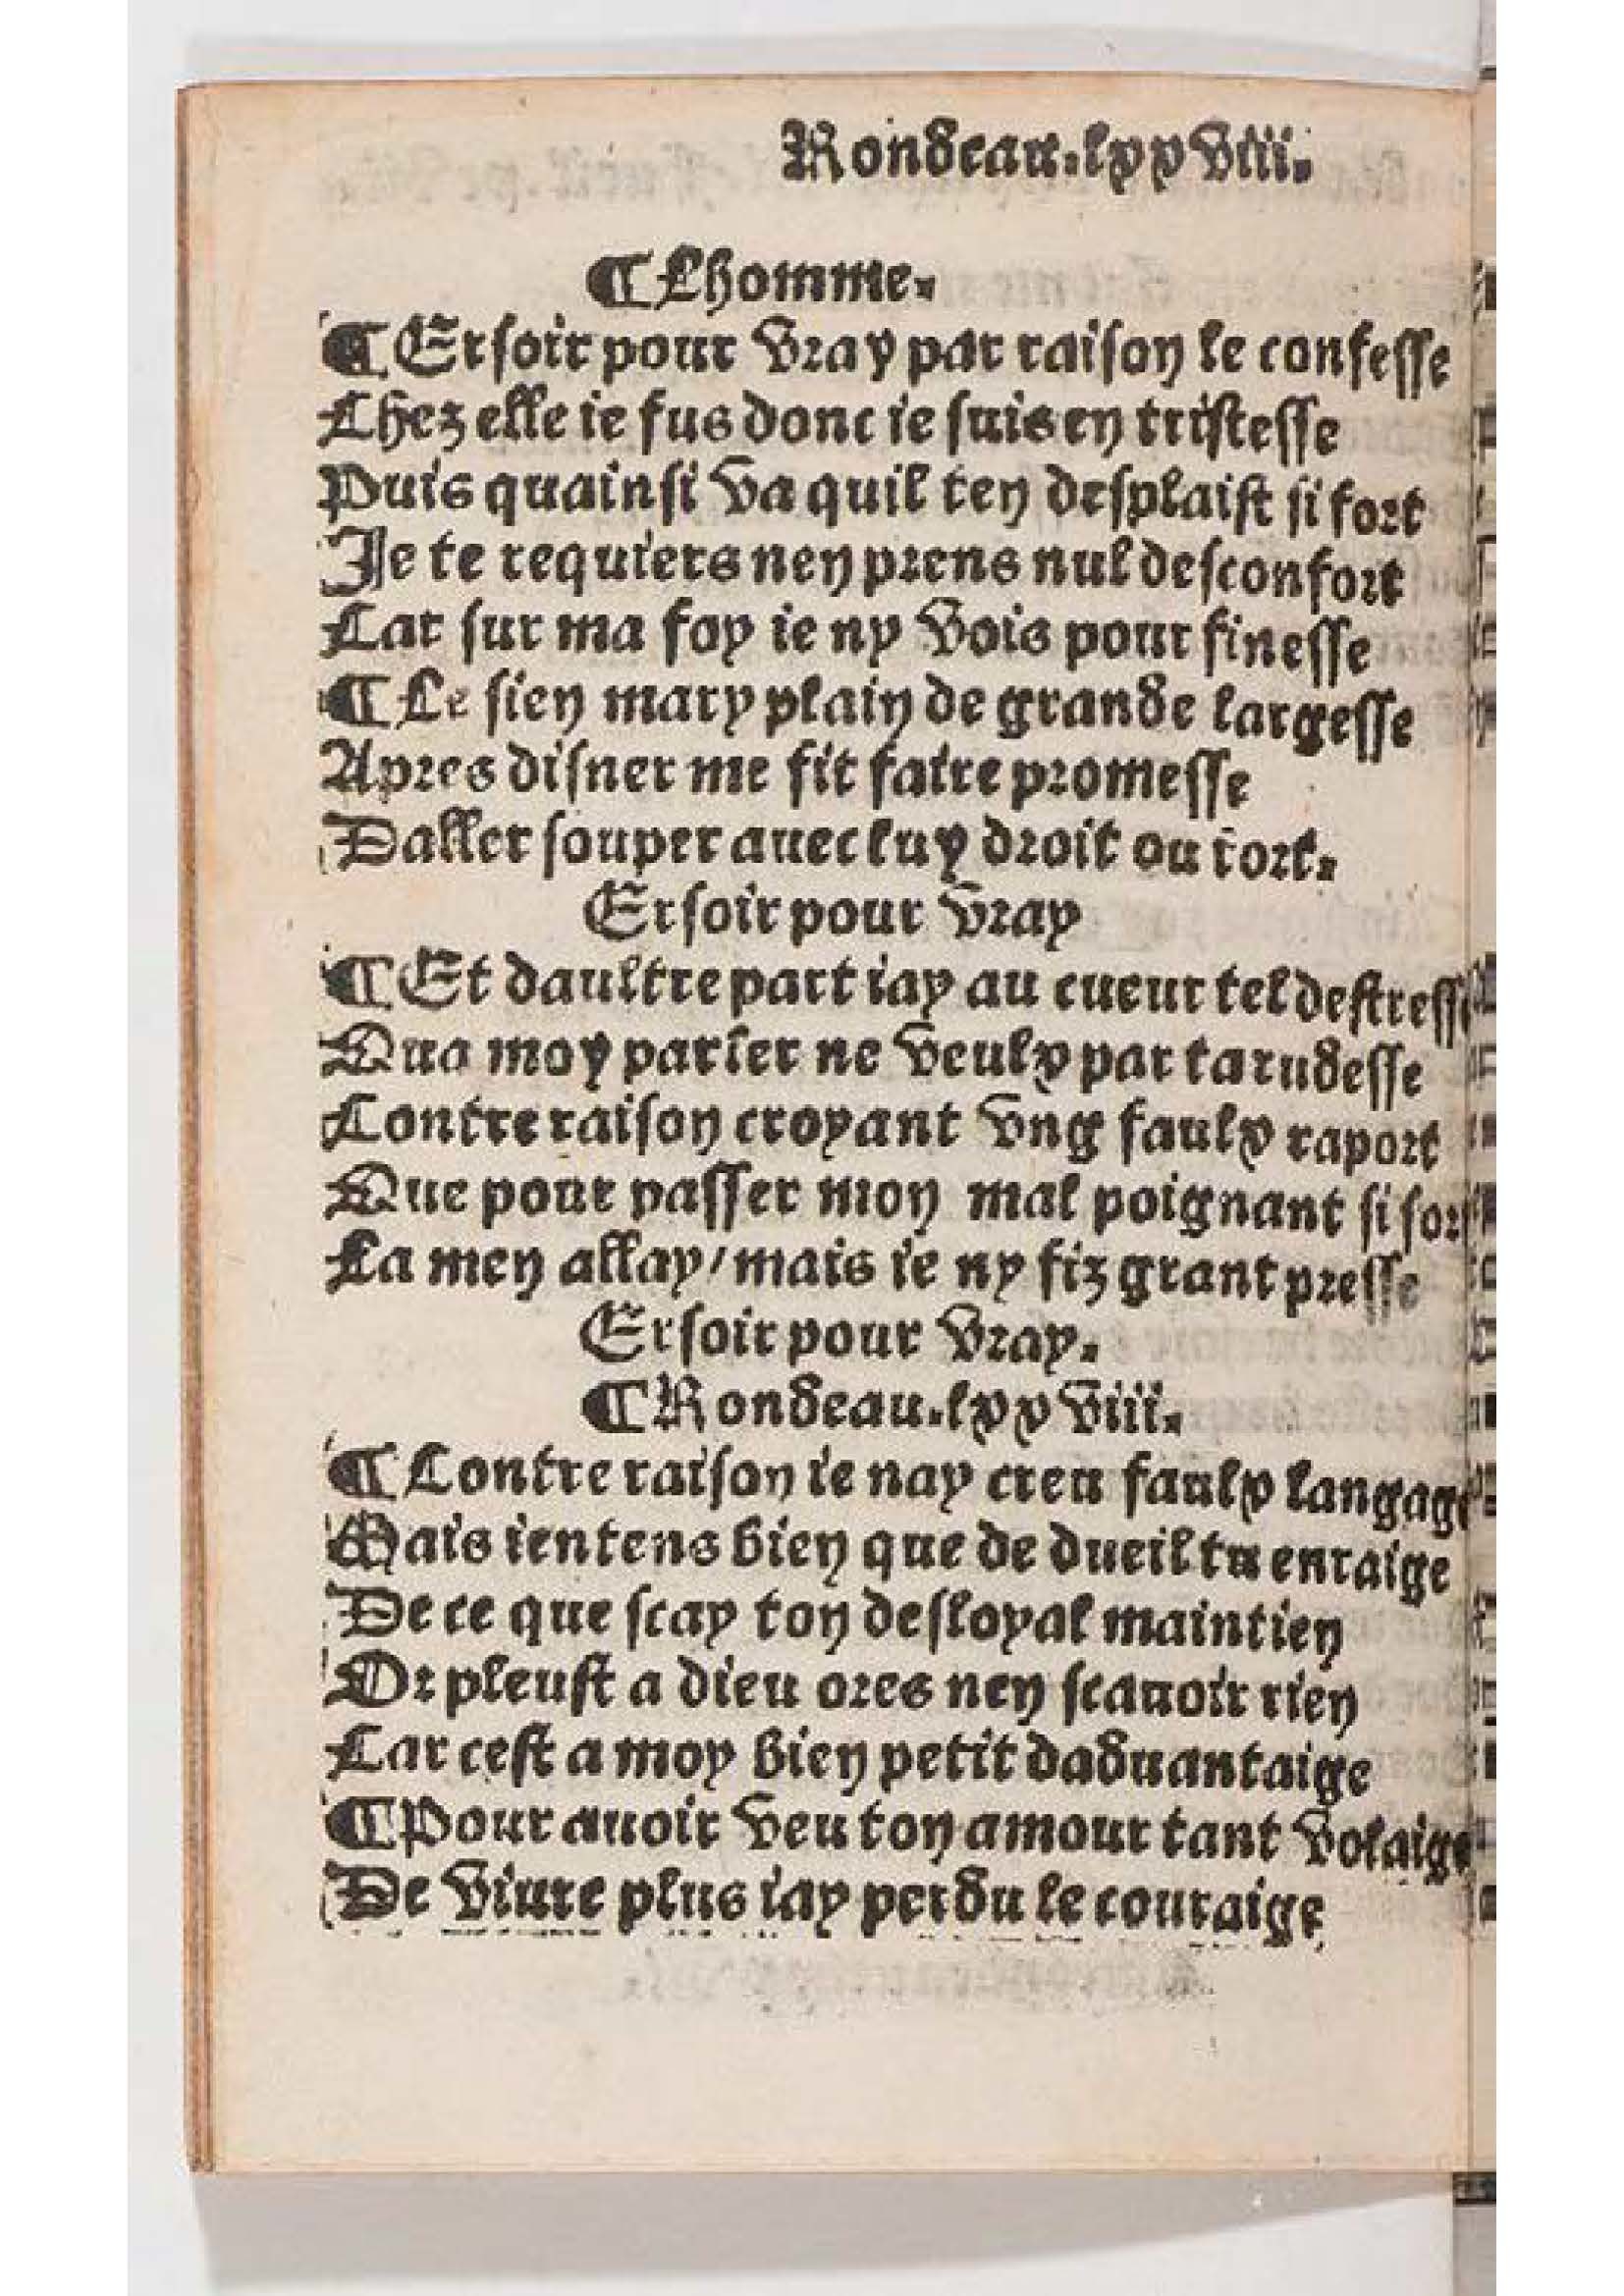 Rondeau.lxxviii.
¶Lhomme.
¶Ersoir pour vray par raison le confesse
Chez elle ie fus donc ie suis en tristesse
Puis quainsi va quil ten desplaist si fort
Je te requiers nen prens nul desconfort
Car sur ma foy ie ny vois pour finesse
¶Le sien mary plain de grande largesse
Apres disner me fit faire promesse
Daller souper auec luy droit ou tort.
Ersoir pour vray
¶Et daultre part iay au cueur tel destresse
Qua moy parler ne veulx par ta rudesse
Contre raison croyant vng faulx raport
Que pour passer mon mal poignant si fort
La men allay/mais ie ny fiz grant presse
Ersoir pour vray.
¶Rondeau.lxxviii.
¶Contre raison ie nay creu faulx langage
Mais ientens bien que de dueil tu enraige
De ce que scay ton desloyal maintien
Or pleust a dieu ores nen scauoir rien
Car cest a moy bien petit daduantaige
¶Pour auoir veu ton amour tant volaige
De viure plus iay perdu le couraige